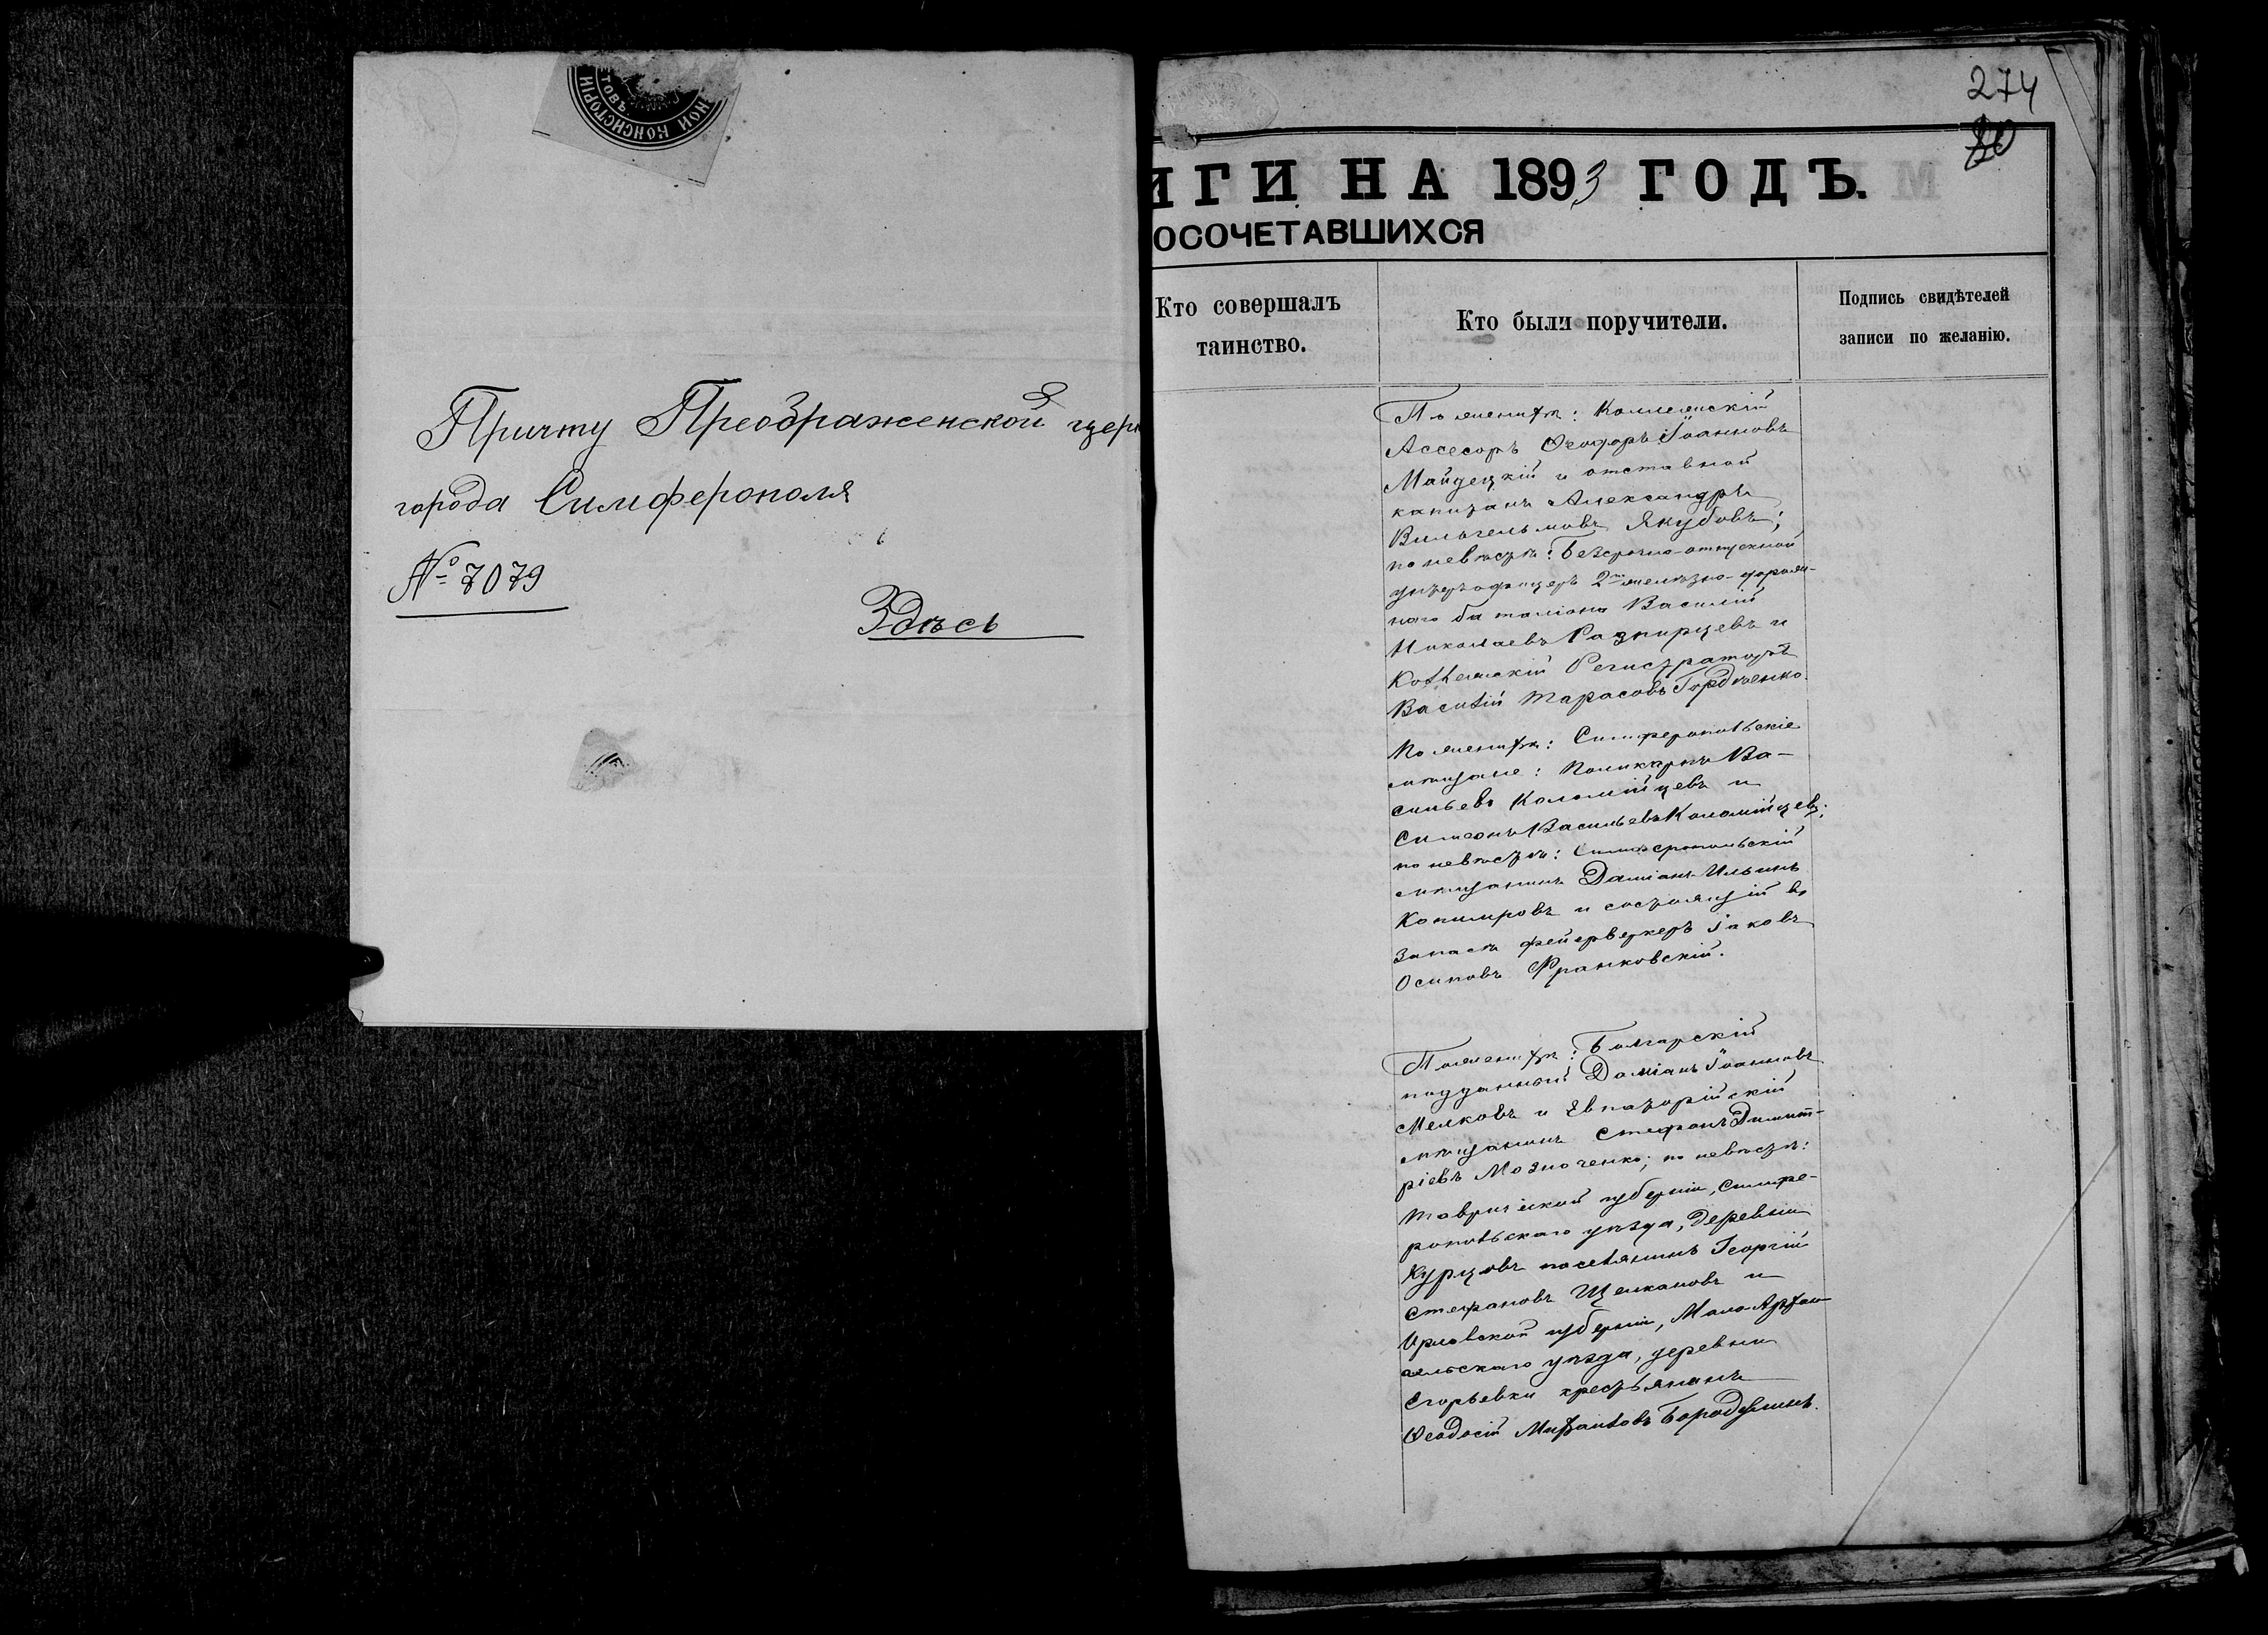 НОЙ КОНСИСТОРІИ
ТОВЪ
Причту Преображенской церк
города Симферополя
№ 7079
Здѣсь
274
ИГИ НА 1893 ГОДЪ.
ОСОЧЕТАВШИХСЯ
Кто совершалъ
таинство.
Кто были поручители.
Подпись свидѣтелей
записи по желанію.
По женихѣ: Коллежскій
Ассесоръ Ѳеодоръ Іоанновъ
Майдецкій и отставной
капитанъ Александръ
Вильгельмовъ Якубовъ;
по невѣстѣ: Безсрочно-отпускной
унтеръ-офицеръ 2го желѣзно-дорож-
наго баталіона Василій
Николаевъ Разнирцевъ и
Коллежскій Регистраторъ
Василій Тарасовъ Гордѣенко.
По женихѣ: Симферопольскіе
мѣщане: Поликарпъ Ва-
сильевъ Коломійцевъ и
Симеонъ Васильевъ Коломійцевъ;
по невѣстѣ: Симферопольскій
мѣщанинъ Даміанъ Ильинъ
и состоящій въ
запасѣ фейерверкеръ Іаковъ
Осиповъ Франковскій.
По женихѣ: Болгарскій
подданный Даміанъ Іоанновъ
Мелковъ и Евпаторійскій
мѣщанинъ Стефанъ Димит-
ріевъ Мозноченко; по невѣстѣ:
Таврической губерніи, Симфе-
ропольскаго уѣзда, деревни
Курцовъ поселянинъ Георгій
Стефановъ Щелкановъ и
Орловской губерніи, Мало-Архан-
гельскаго уѣзда, деревни
Егорьевки крестьянинъ
Ѳеодосій Михаиловъ Бородулинъ.